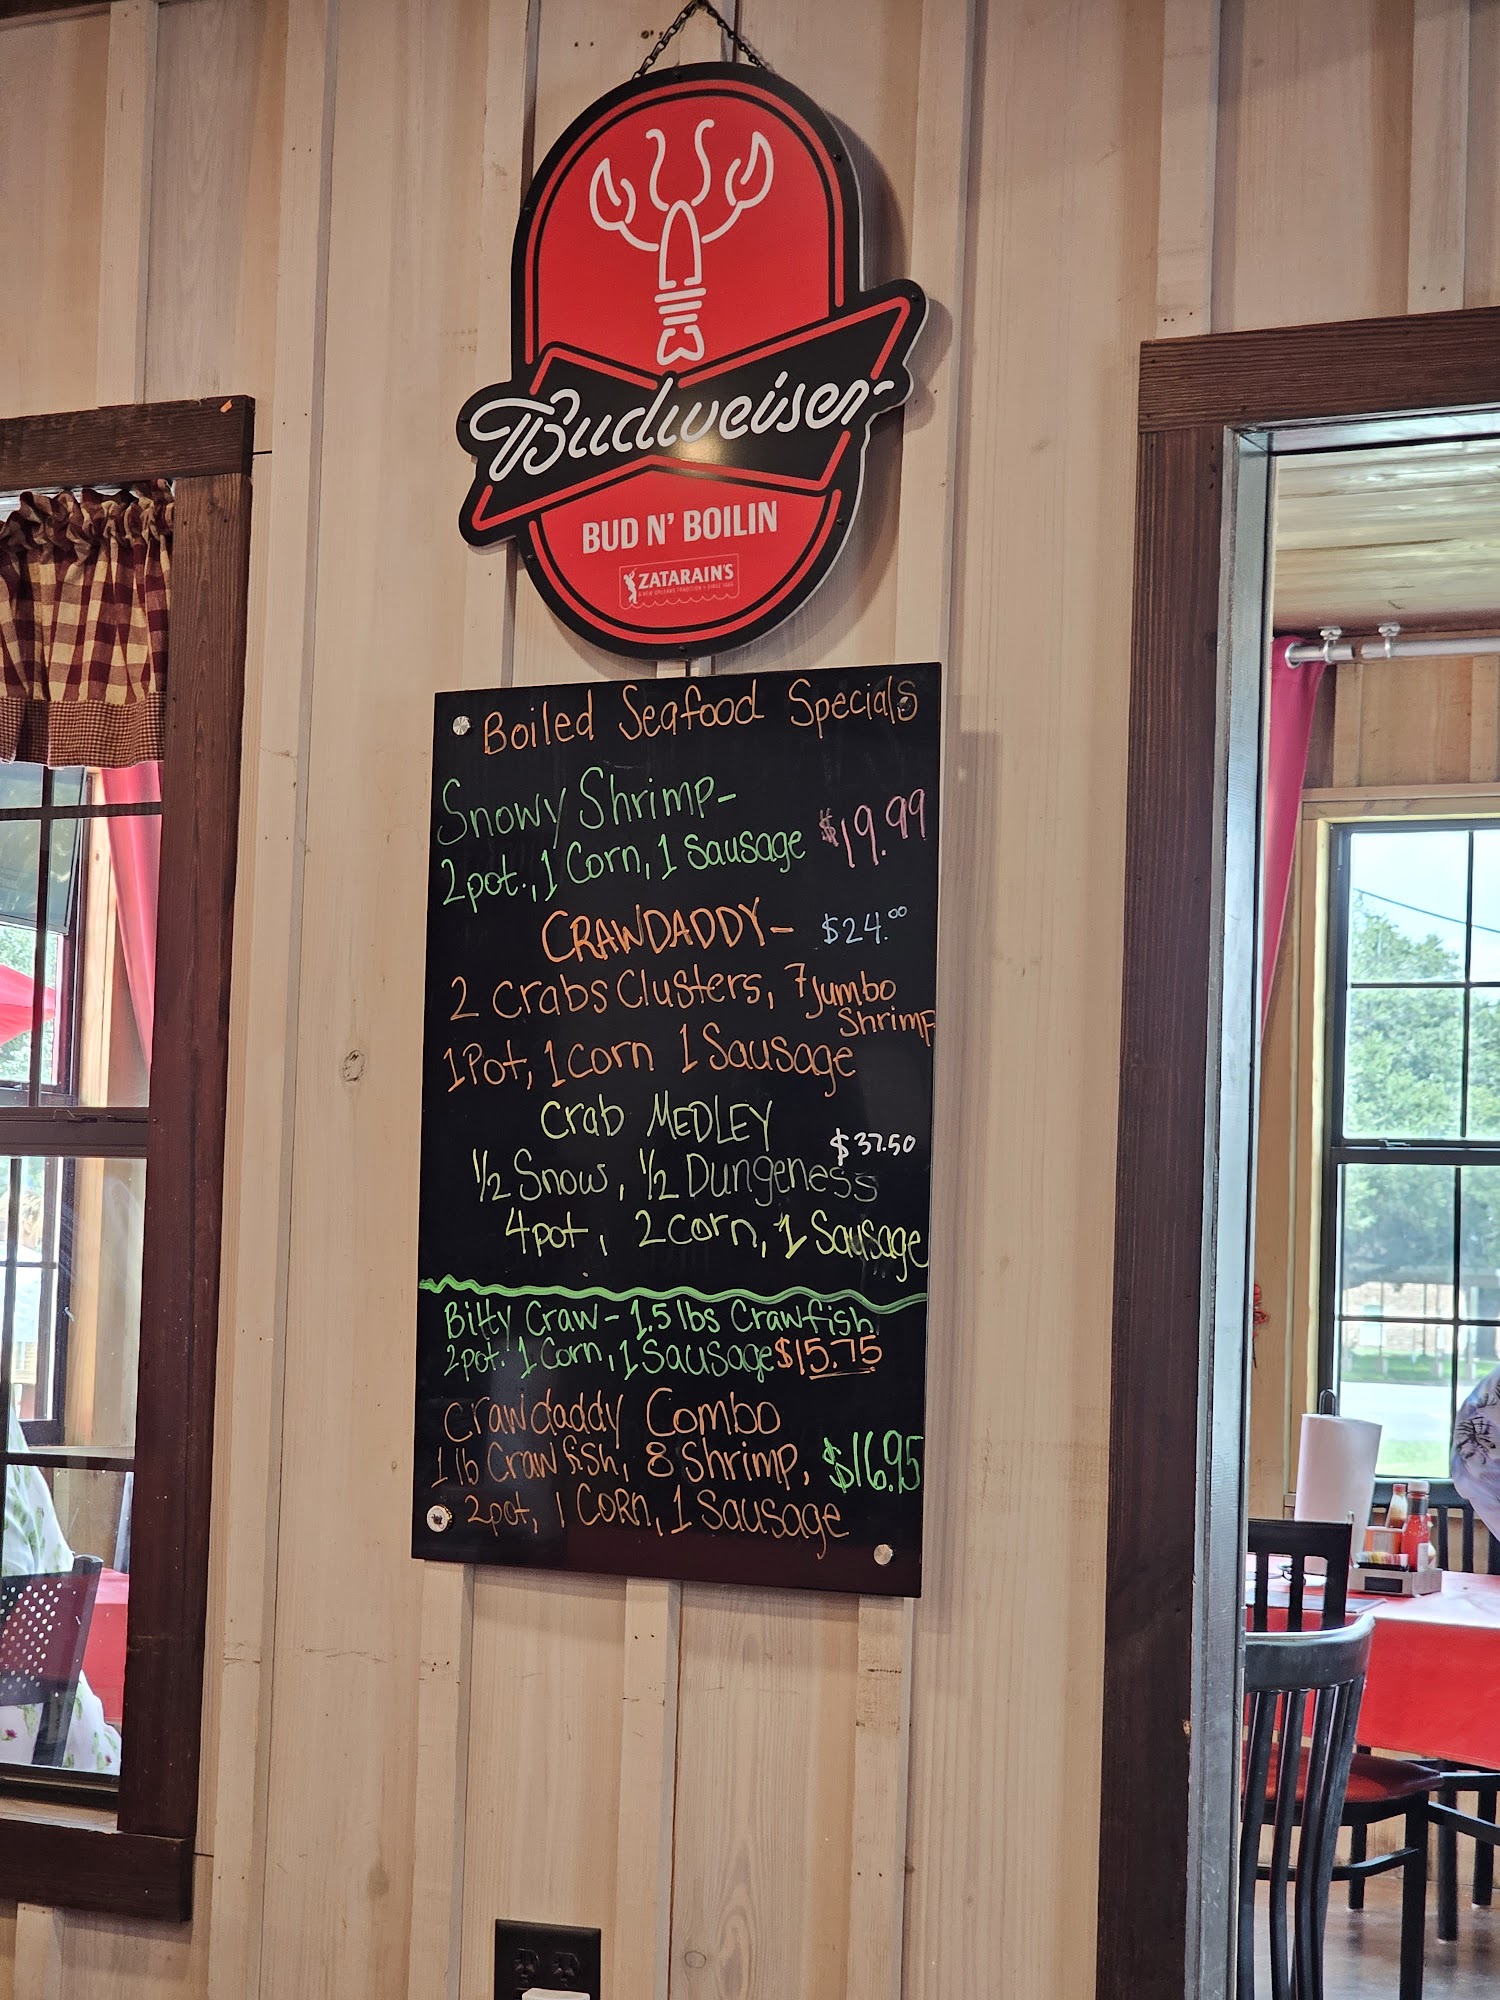 Budweiser
BUD N' BOILIN
ZATARAIN'S
A NEW ORLEANS TRADITION • SINCE 1889
Boiled Seafood Specials
Snowy Shrimp-
2pot., 1 Corn, 1 Sausage $19.99
CRAWDADDY- $24.00
2 Crabs Clusters, 7 Jumbo
Shrimp
1 Pot, 1 corn 1 Sausage
Crab MEDLEY
$37.50
1/2 Snow, 1/2 Dungeness
4pot, 2 corn, 1 Sausage
Bitty Craw - 1.5 lbs Crawfish
2pot. 1 Corn, 1 Sausage $15.75
Crawdaddy Combo
1 lb Crawfish, 8 Shrimp, $16.95
2pot, 1 CORN, 1 Sausage